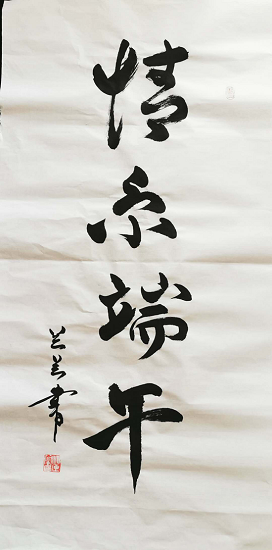 情系端午
兰芳书